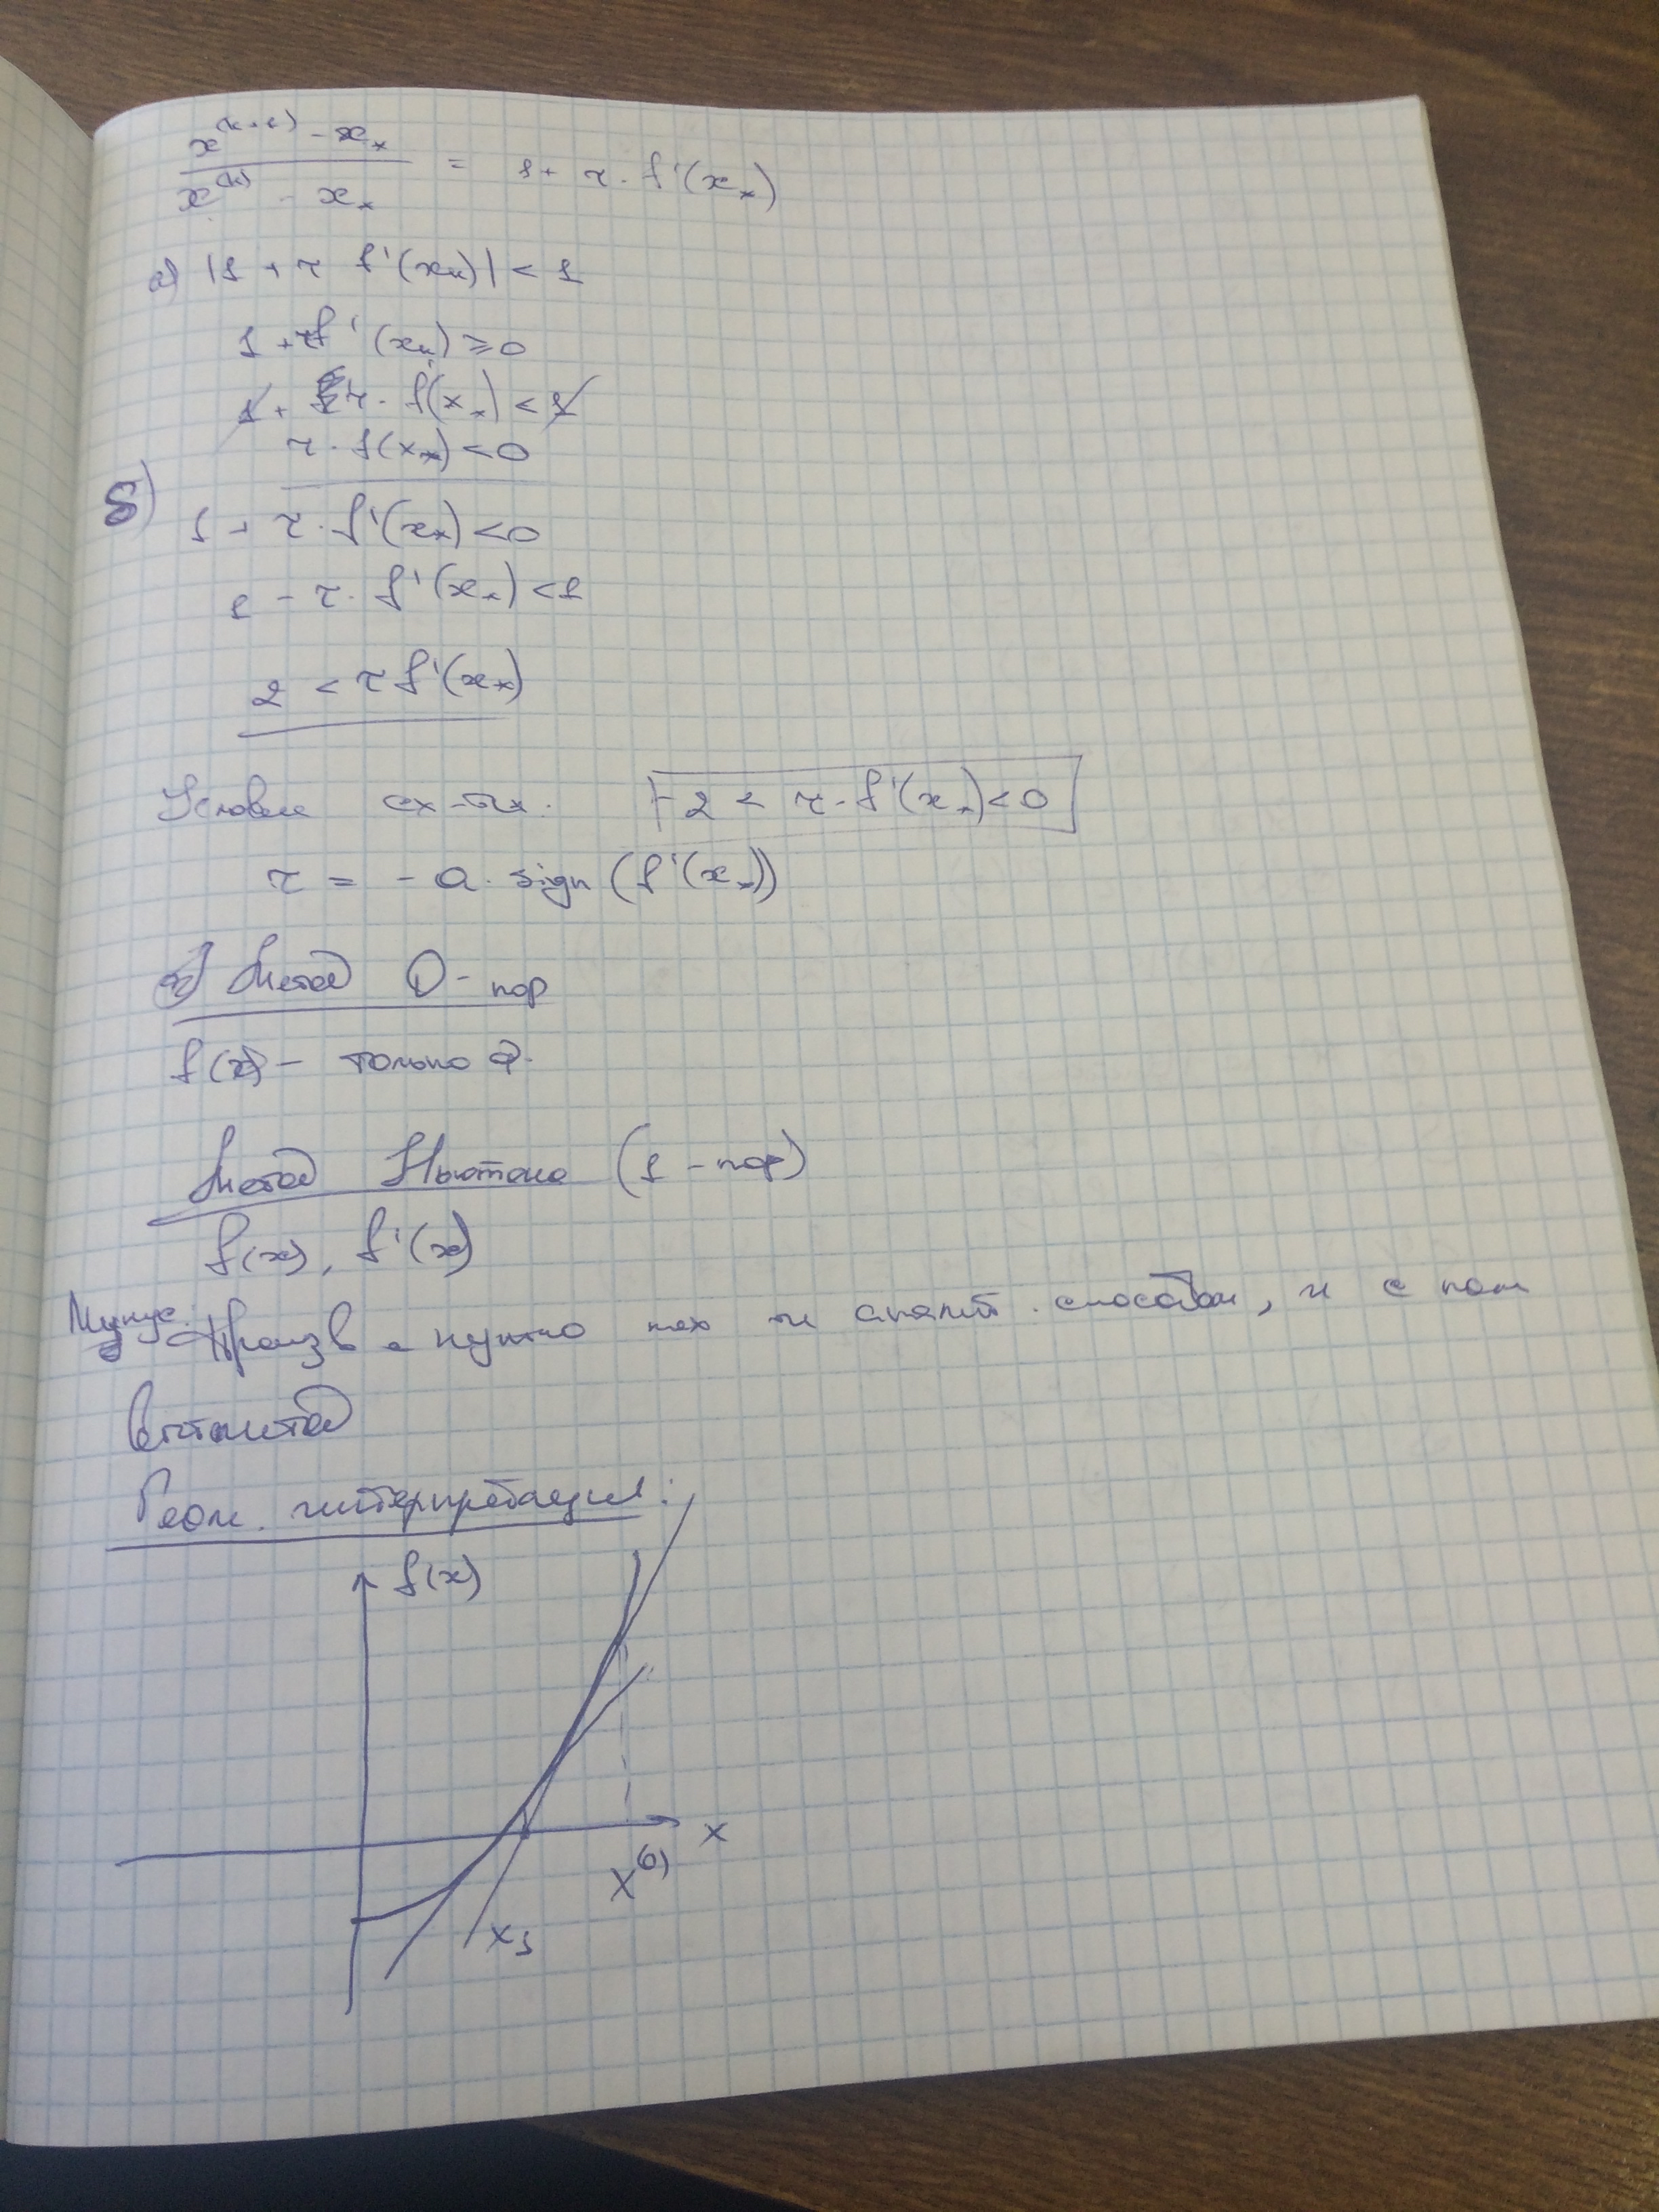 x^(k+1) - x_* / x^(k) - x_* = 1 + τ · f'(x_*)
а) |1 + τ f'(x_*)| < 1
1 + τf'(x_*) ≥ 0
1 + τ · f(x_*) < 1
τ · f(x_*) < 0
б) 1 + τ · f'(x_*) < 0
1 - τ · f'(x_*) < 1
2 < τ f'(x_*)
Условие сх-ти: -2 < τ · f'(x_*) < 0
τ = - a · sign (f'(x_*))
Метод 0 - пор
f(x) - только
Метод Ньютона (1 - пор)
f(x), f'(x)
Минус: нужно способом, и с пом
Геом. интерпретация:
f(x)
x
x^(0)
x_1